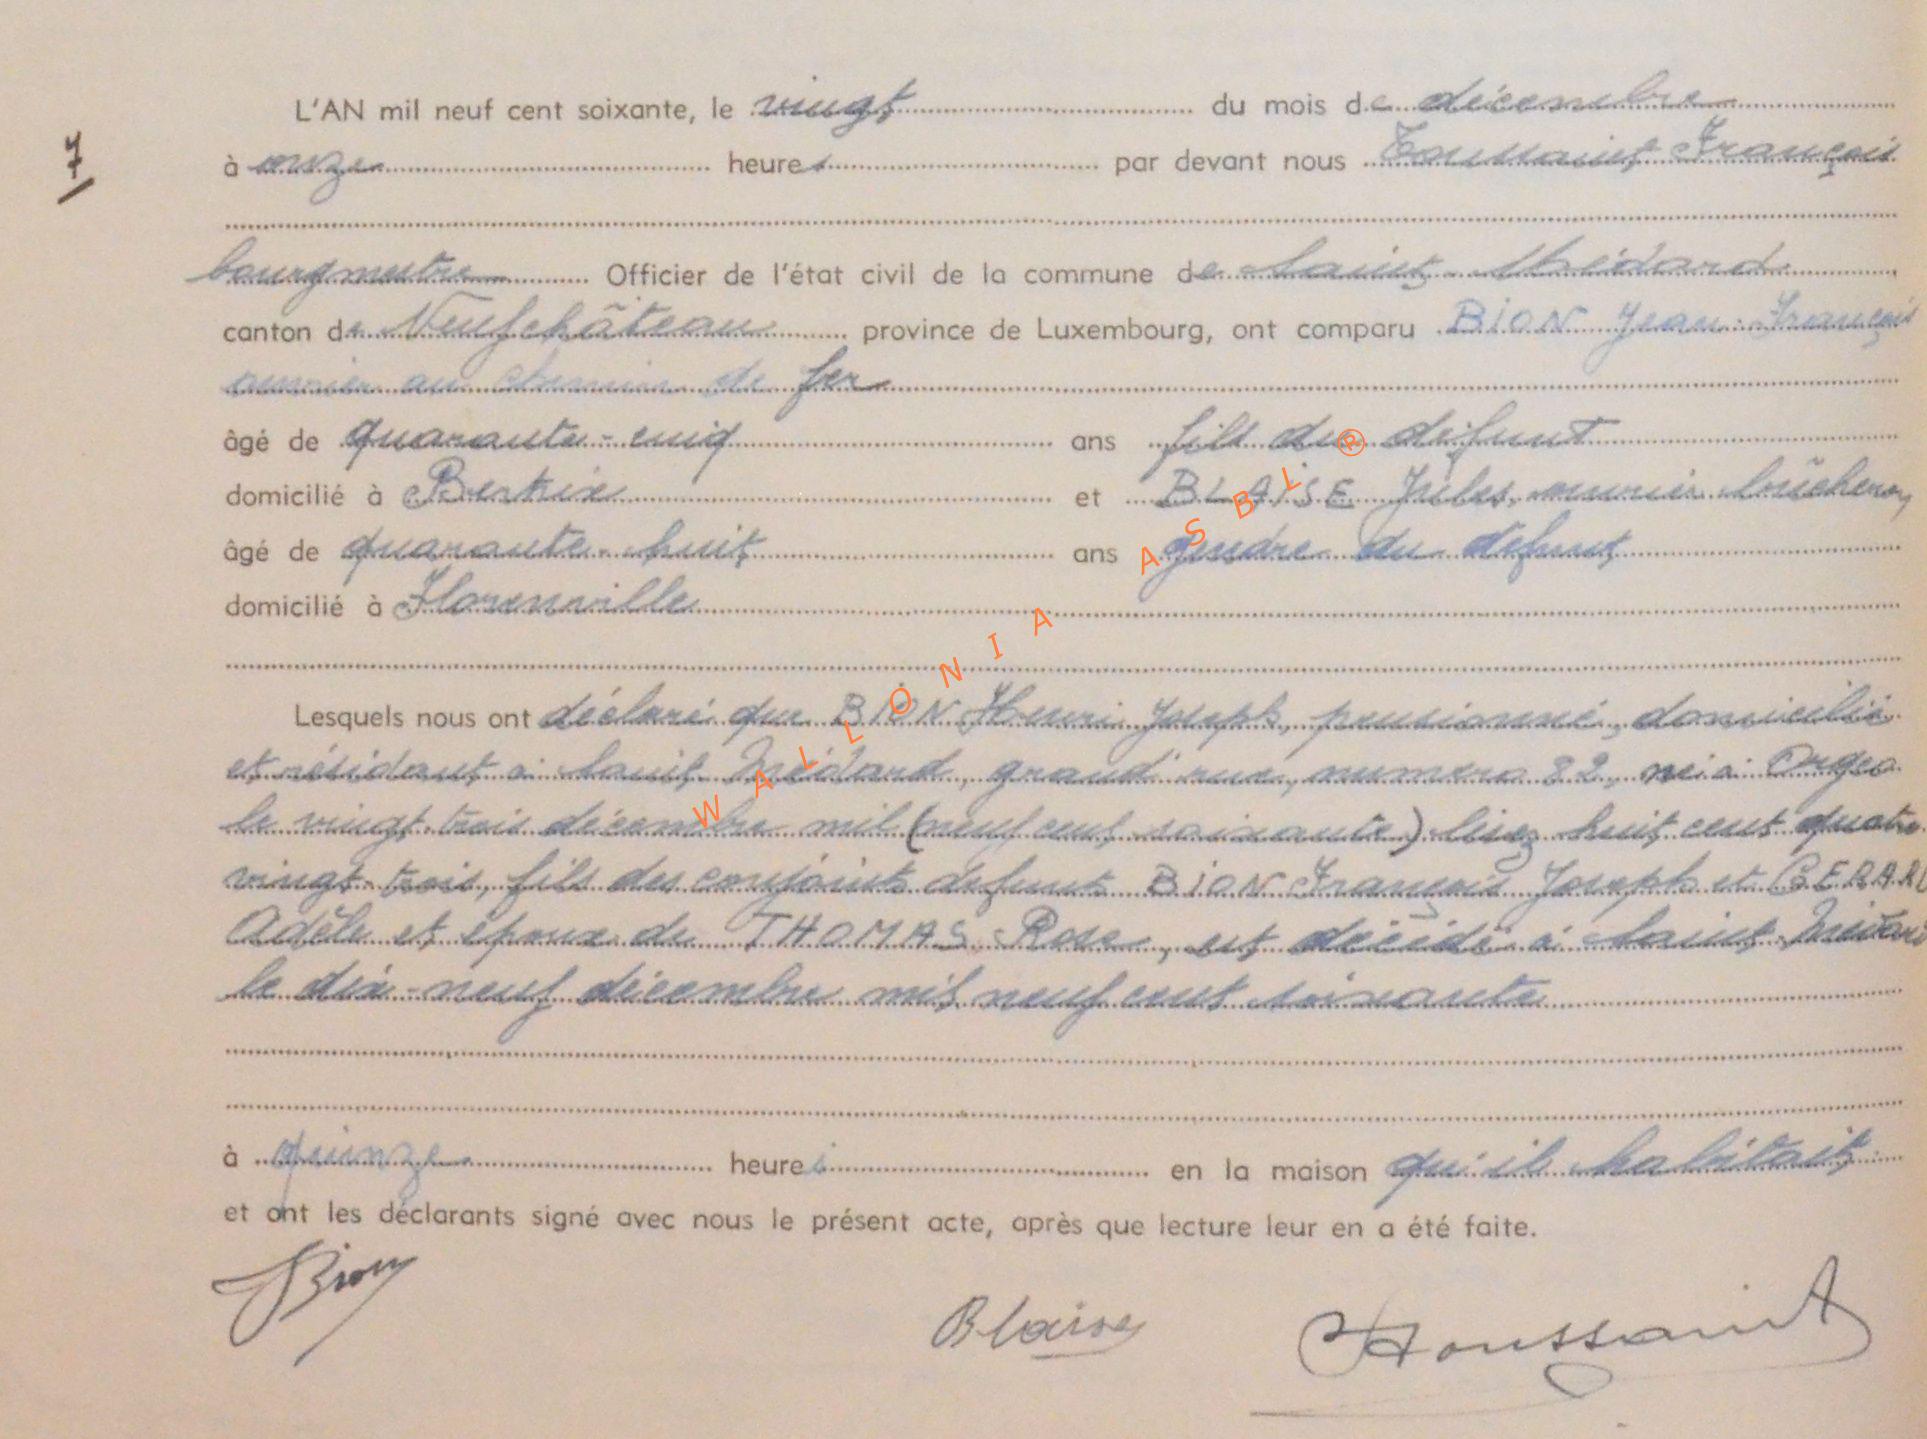 L'AN mil neuf cent soixante, le vingt du mois de décembre
7
à onze heures par devant nous Toussaint François
bourgmestre Officier de l'état civil de la commune de Saint-Médard
canton de Neufchâteau province de Luxembourg, ont comparu BION Jean-François
ouvrier au chemin de fer
âgé de quarante-cinq ans fils du défunt
domicilié à Bertrix et BLAISE Jules, ouvrier bûcheron,
âgé de quarante-huit ans gendre du défunt
domicilié à Florenville
Lesquels nous ont déclaré que BION Henri Joseph, pensionné, domicilié
et résidant à Saint-Médard, grand'rue, numéro 82, né à Orgeo
le vingt-trois décembre mil (neuf cent soixante) lisez huit cent quatre
vingt-trois, fils des conjoints défunts BION François Joseph et GERARD
Adèle et époux de THOMAS Rose, est décédé à Saint-Médard
le dix-neuf décembre mil neuf cent soixante
à quinze heures en la maison qu'il habitait
et ont les déclarants signé avec nous le présent acte, après que lecture leur en a été faite.
JBion
Blaise
Toussaint
WALLONIA ASBL ®